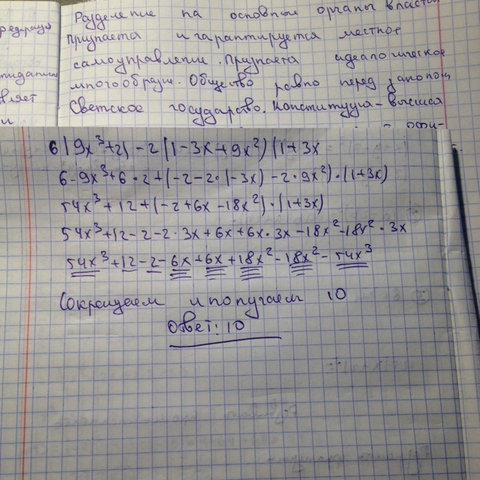 Разделение на основные органы власти
Признается и гарантируется местное
самоуправление. Признается идеологическое
многообразие. Общество равно перед законом
Светское государство. Конституция - высшая
6(9x³+2)-2(1-3x+9x²)(1+3x
6·9x³+6·2+(-2-2·(-3x)-2·9x²)·(1+3x)
54x³+12+(-2+6x-18x²)·(1+3x)
54x³+12-2-2·3x+6x+6x·3x-18x²-18x²·3x
54x³+12-2-6x+6x+18x²-18x²-54x³
Сокращаем и получаем 10
Ответ: 10